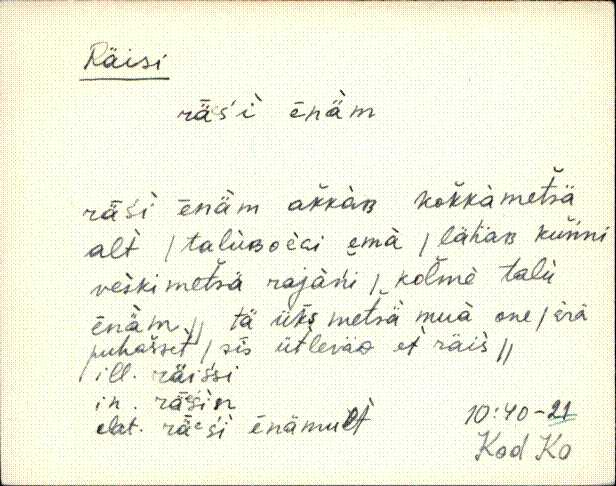 Räisi
rǟᵉśì ēnä̀m
rǟśì ēnä̀m ak̆kàʙ kok̆kàmet̆sä
alt̀ / talùʙoèɢi ĕmà / lähäʙ kŭńni
veśkimet̆sä rajàńi /, kŏlmè talù
ēnä̀m // tä ük̆s met̆sä muà one / ärä
puhas̆set̀ / sīs üt̆leväᴅ et̀ räis̀ //
ill. räis̆si
in. rǟᵉśin
elat. rǟᵉśi ēnämuèt̀
10:40-21
Kod Ko